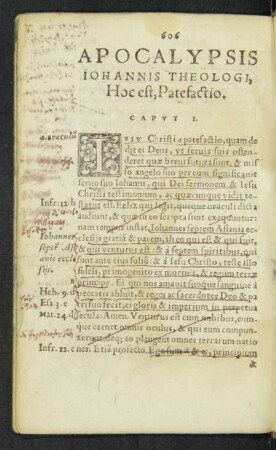 606
APOCALYPSIS
IOHANNIS THEOLOGI,
Hoc est, Patefactio.
CAPVT I.
IESV Christi patefactio, quam de
dit ei Deus, vt seruis suis osten-
deret quæ breui futura sunt, & mis
so angelo suo per eum significauit
seruo suo Iohanni, qui Dei sermonem & Iesu
Christi testimonium, ac quæcunque vidit te-
Infr. 12 b status est. Felix qui legit, iique qui verba dicta
audiunt, & quæ in eo scripta sunt exequuntur:
nam tempus instat. Iohannes septem Asianis ec-
clesiis gratiã & pacem, ab eo qui est & qui fuit,
& qui venturus est: & a septem spiritibus, qui
sunt ante eius soliũ: & à Iesu Christo, teste illo
fideli, primogenito ex mortuis, & regum terræ
principe. Ei qui nos amauit suoque sanguine à
Heb. 9. d peccatis abluit, & reges ac sacerdotes Deo & pa
Esa 3 e tri suo fecit, ei gloria & imperium in perpetua
Mat. 24 d secula: Amen. Venturus est cum nubibus, eum-
que cernet omnis oculus, & qui eum compun-
xerunt, deque eo plangent omnes terrarum natio
Infr. 22. c nes. Etiã profecto. Ego sum α & ω, principium
&